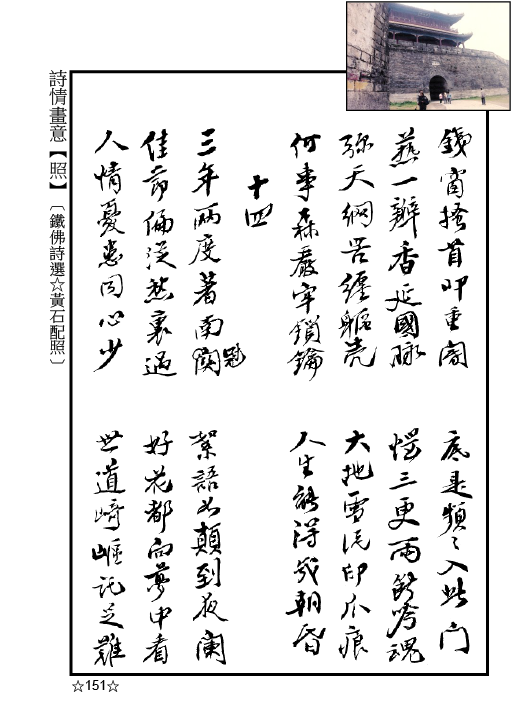 鐵窗搔首叩重閽　底是頻〻入此門
爇一瓣香延國脉　三更雨吟魂
弥天網苦纏軀壳　大地雪泥印爪痕
何事森嚴牢鎖鑰　人生能得幾朝昏
十四
三年兩度著南冠　絮語如顛到夜闌
佳節偏從愁裏過　好花都向夢中看
人情憂患同心少　世道崎嶇託足難
詩情畫意【照】〔鐵佛詩選☆黃石配照〕
☆151☆